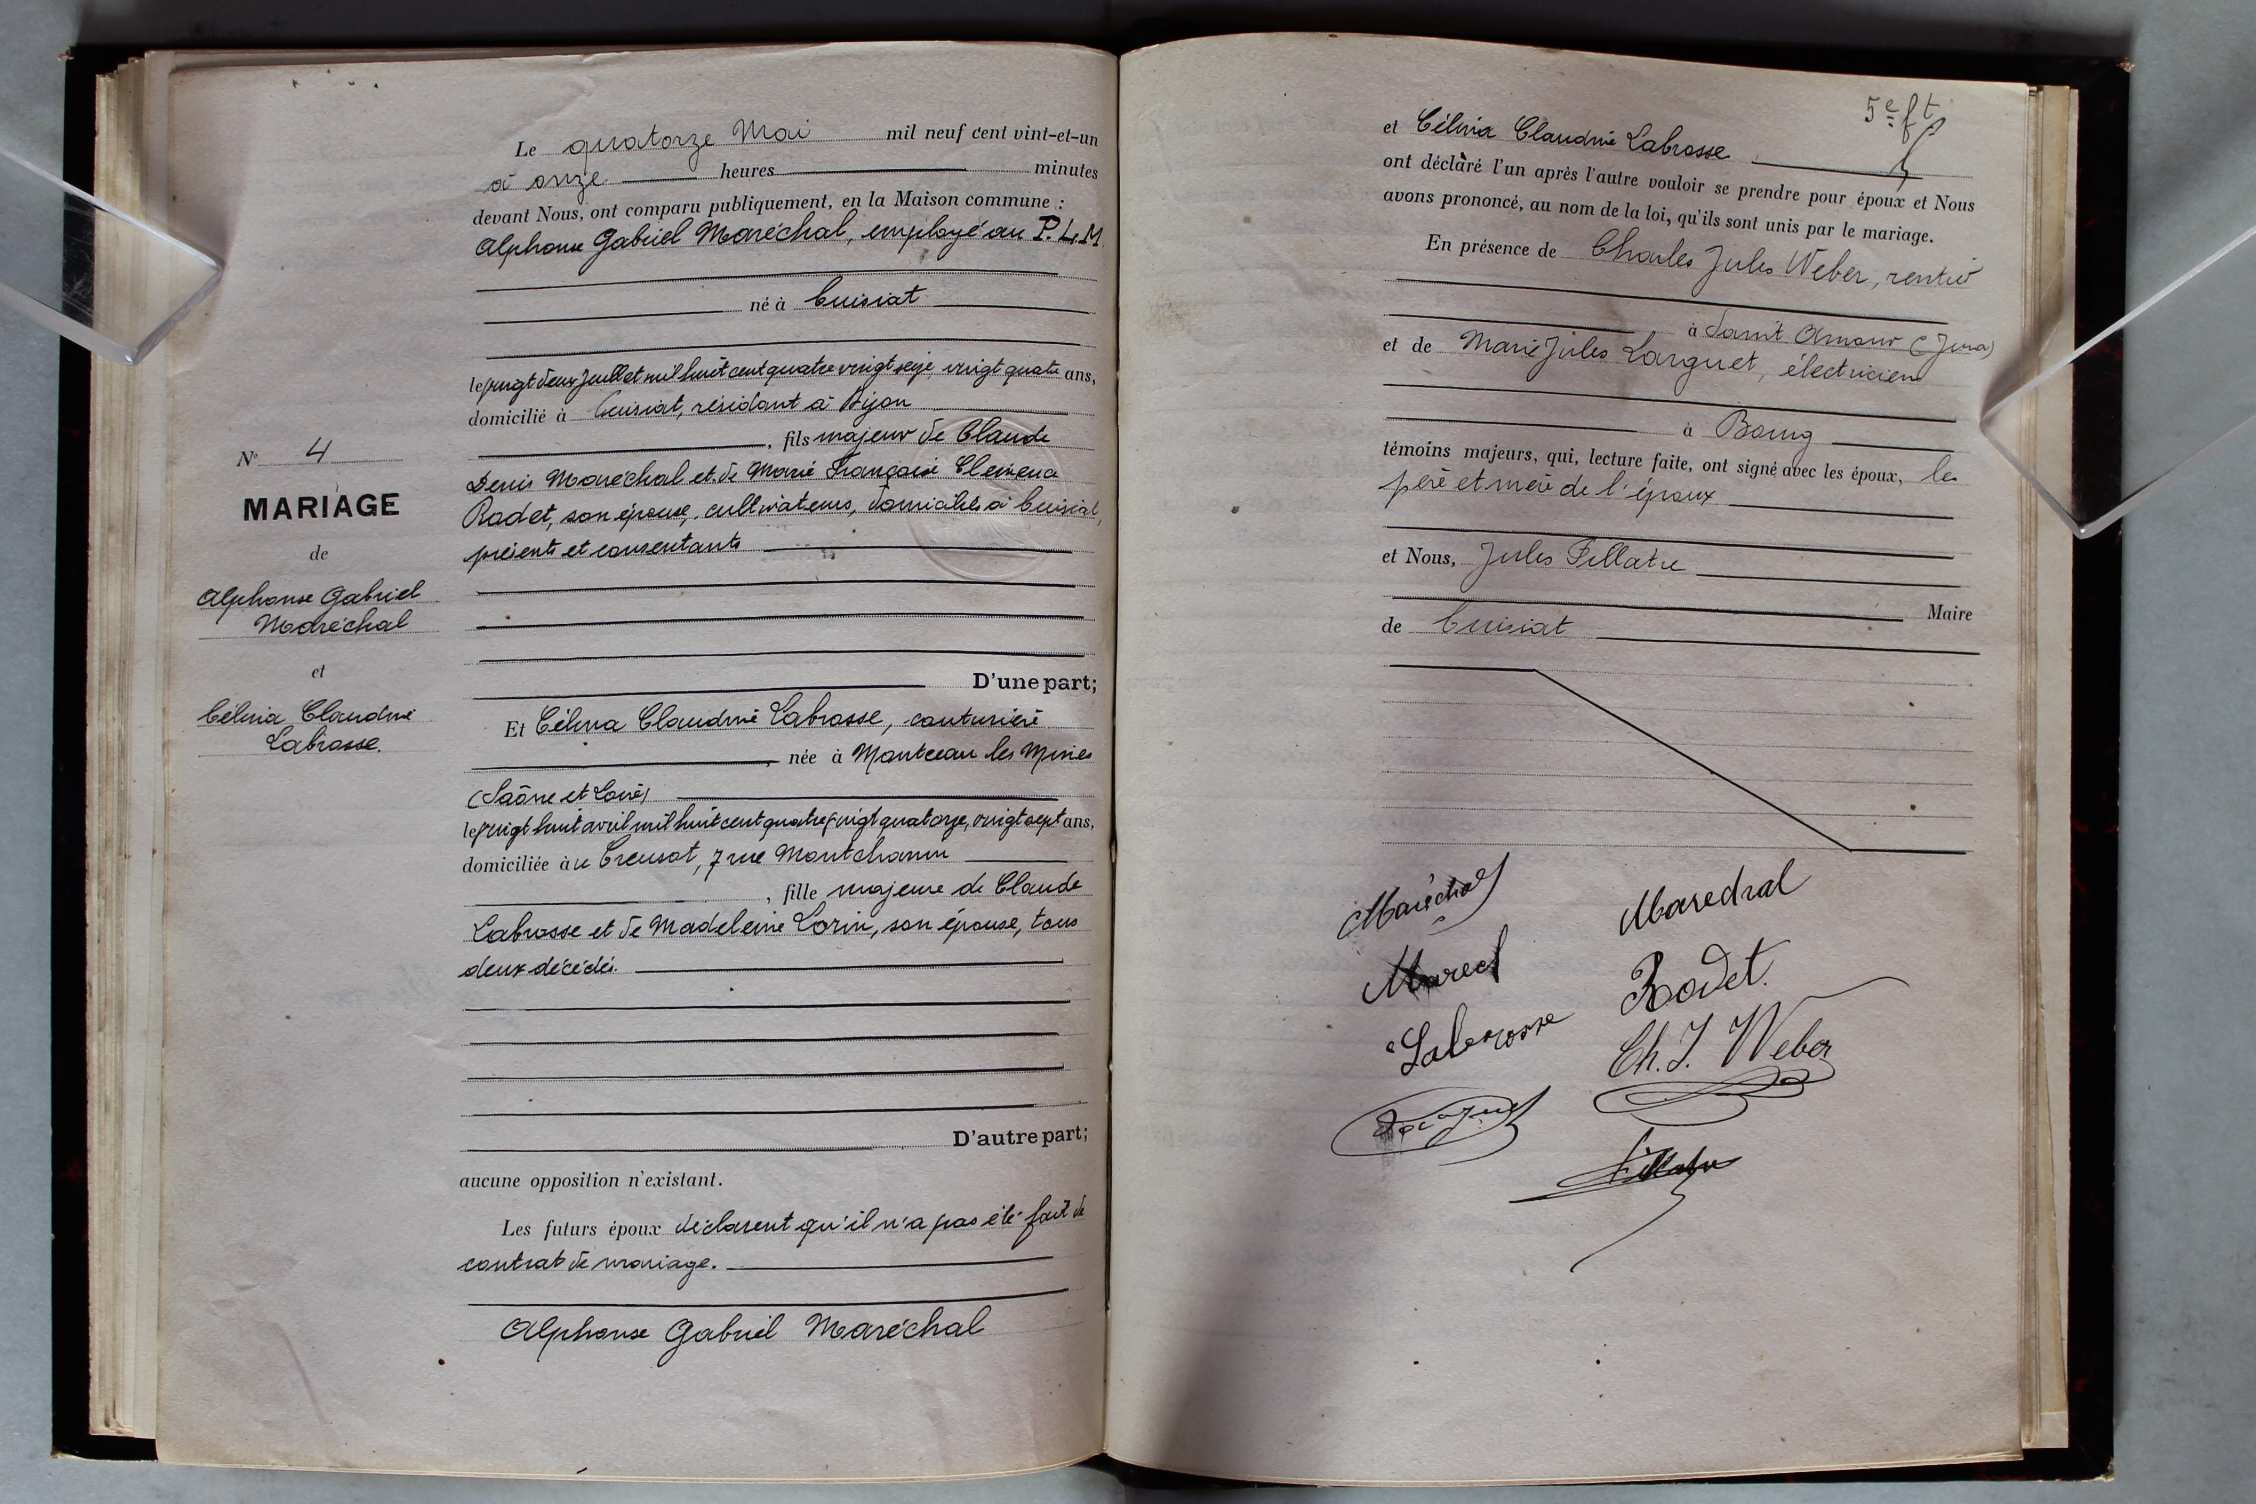 Le quatorze Mai mil neuf cent vint-et-un
à onze heures minutes
devant Nous, ont comparu publiquement, en la Maison commune :
Alphonse Gabriel Maréchal, employé au P.L.M
né à Cuisiat
le vingt deux Juillet mil huit cent quatre vingt seize, vingt quatre ans,
domicilié à Cuisiat, résidant à Dijon
, fils majeur de Claude
Denis Maréchal et de Marie Françoise Clémence
Radet, son épouse, cultivateurs, domiciliés à Cuisiat,
présents et consentants
D'une part;
Et Célina Claudine Labrosse, couturière
, née à Montceau les Mines
(Saône et Loire)
le vingt huit avril mil huit cent quatre vingt quatorze, vingt sept ans,
domiciliée à u Creusot, 7 rue Montchanin
, fille majeure de Claude
Labrosse et de Madeleine Lorin, son épouse, tous
deux décédés.
D'autre part;
aucune opposition n'existant.
Les futurs époux déclarent qu'il n'a pas été fait de
contrat de mariage.
Alphonse Gabriel Maréchal
N° 4
MARIAGE
de
Alphonse Gabriel
Maréchal
et
Célina Claudine
Labrosse.
5e ft
et Célina Claudine Labrosse
ont déclaré l'un après l'autre vouloir se prendre pour époux et Nous
avons prononcé, au nom de la loi, qu'ils sont unis par le mariage.
En présence de Charles Jules Weber, rentier
à Saint Amour (Jura)
et de Marie Jules Larguet, électricien
à Bourg
témoins majeurs, qui, lecture faite, ont signé avec les époux, les
père et mère de l'époux
et Nous, Jules Pillatre
Maire
de Cuisiat
Maréchal
Maredral
Marech
Rodet.
Labrosse
Ch. J. Weber